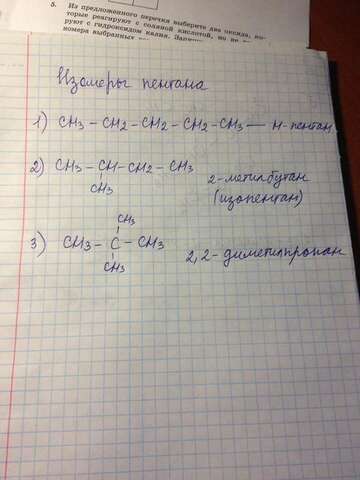 5. Из предложенного перечня выберите два оксида, ко-
торые реагируют с соляной кислотой, но не
руют с гидроксидом калия.
номера выбранных
Изомеры пентана
1) CH3 – CH2 – CH2 – CH2 – CH3 — Н-пентан
2) CH3 – CH – CH2 – CH3
CH3
2-метилбутан
(изопентан)
CH3
3) CH3 – C – CH3
CH3
2,2-диметилпропан